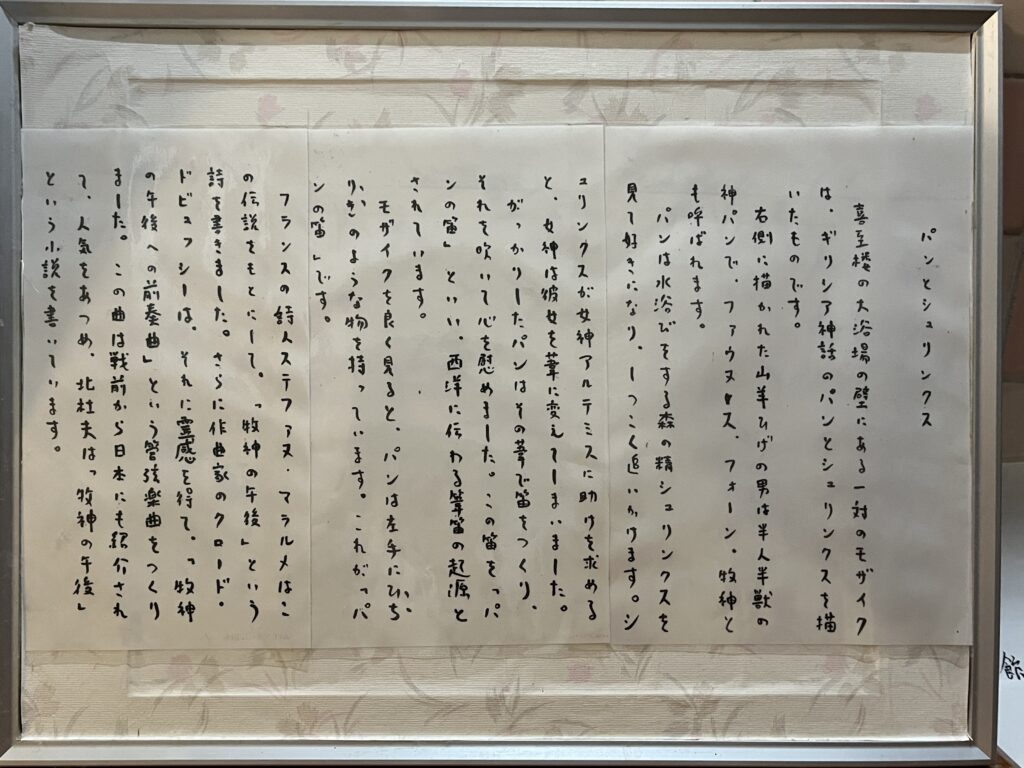 パンとシュリンクス
喜至楼の大浴場の壁にある一対のモザイク
は、ギリシア神話のパンとシュリンクスを描
いたものです。
右側に描かれた山羊ひげの男は半人半獣の
神パンで、ファウヌス、フォーン、牧神と
も呼ばれます。
パンは水浴びをする森の精シュリンクスを
見て好きになり、しつこく追いかけます。シ
ュリンクスが女神アルテミスに助けを求める
と、女神は彼女を葦に変えてしまいました。
がっかりしたパンはその葦で笛をつくり、
それを吹いて心を慰めました。この笛を「パ
ンの笛」といい、西洋に伝わる葦笛の起源と
されています。
モザイクを良く見ると、パンは左手にひち
りきのような物を持っています。これが「パ
ンの笛」です。
フランスの詩人ステファヌ・マラルメはこ
の伝説をもとにして、「牧神の午後」という
詩を書きました。さらに作曲家のクロード・
ドビュッシーは、それに霊感を得て、「牧神
の午後への前奏曲」という管弦楽曲をつくり
ました。この曲は戦前から日本にも紹介され
て、人気をあつめ、北杜夫は「牧神の午後」
という小説を書いています。
館